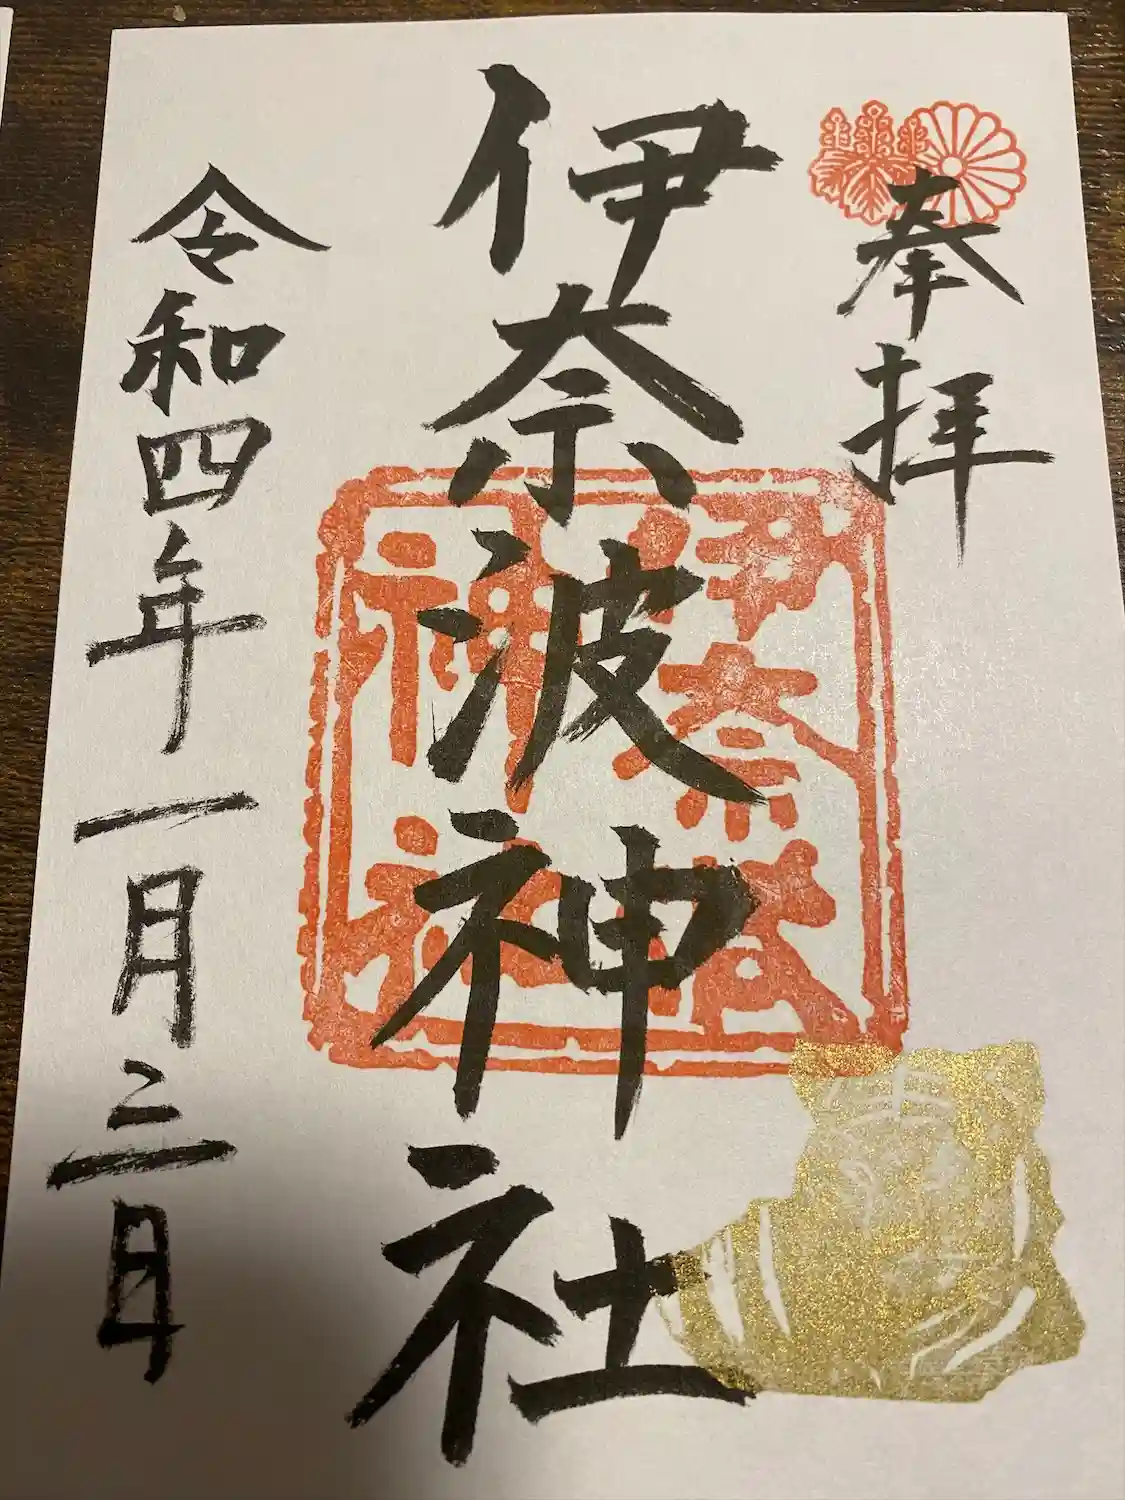 奉拝
伊奈波神社
伊奈波
神社
令和四年一月三日